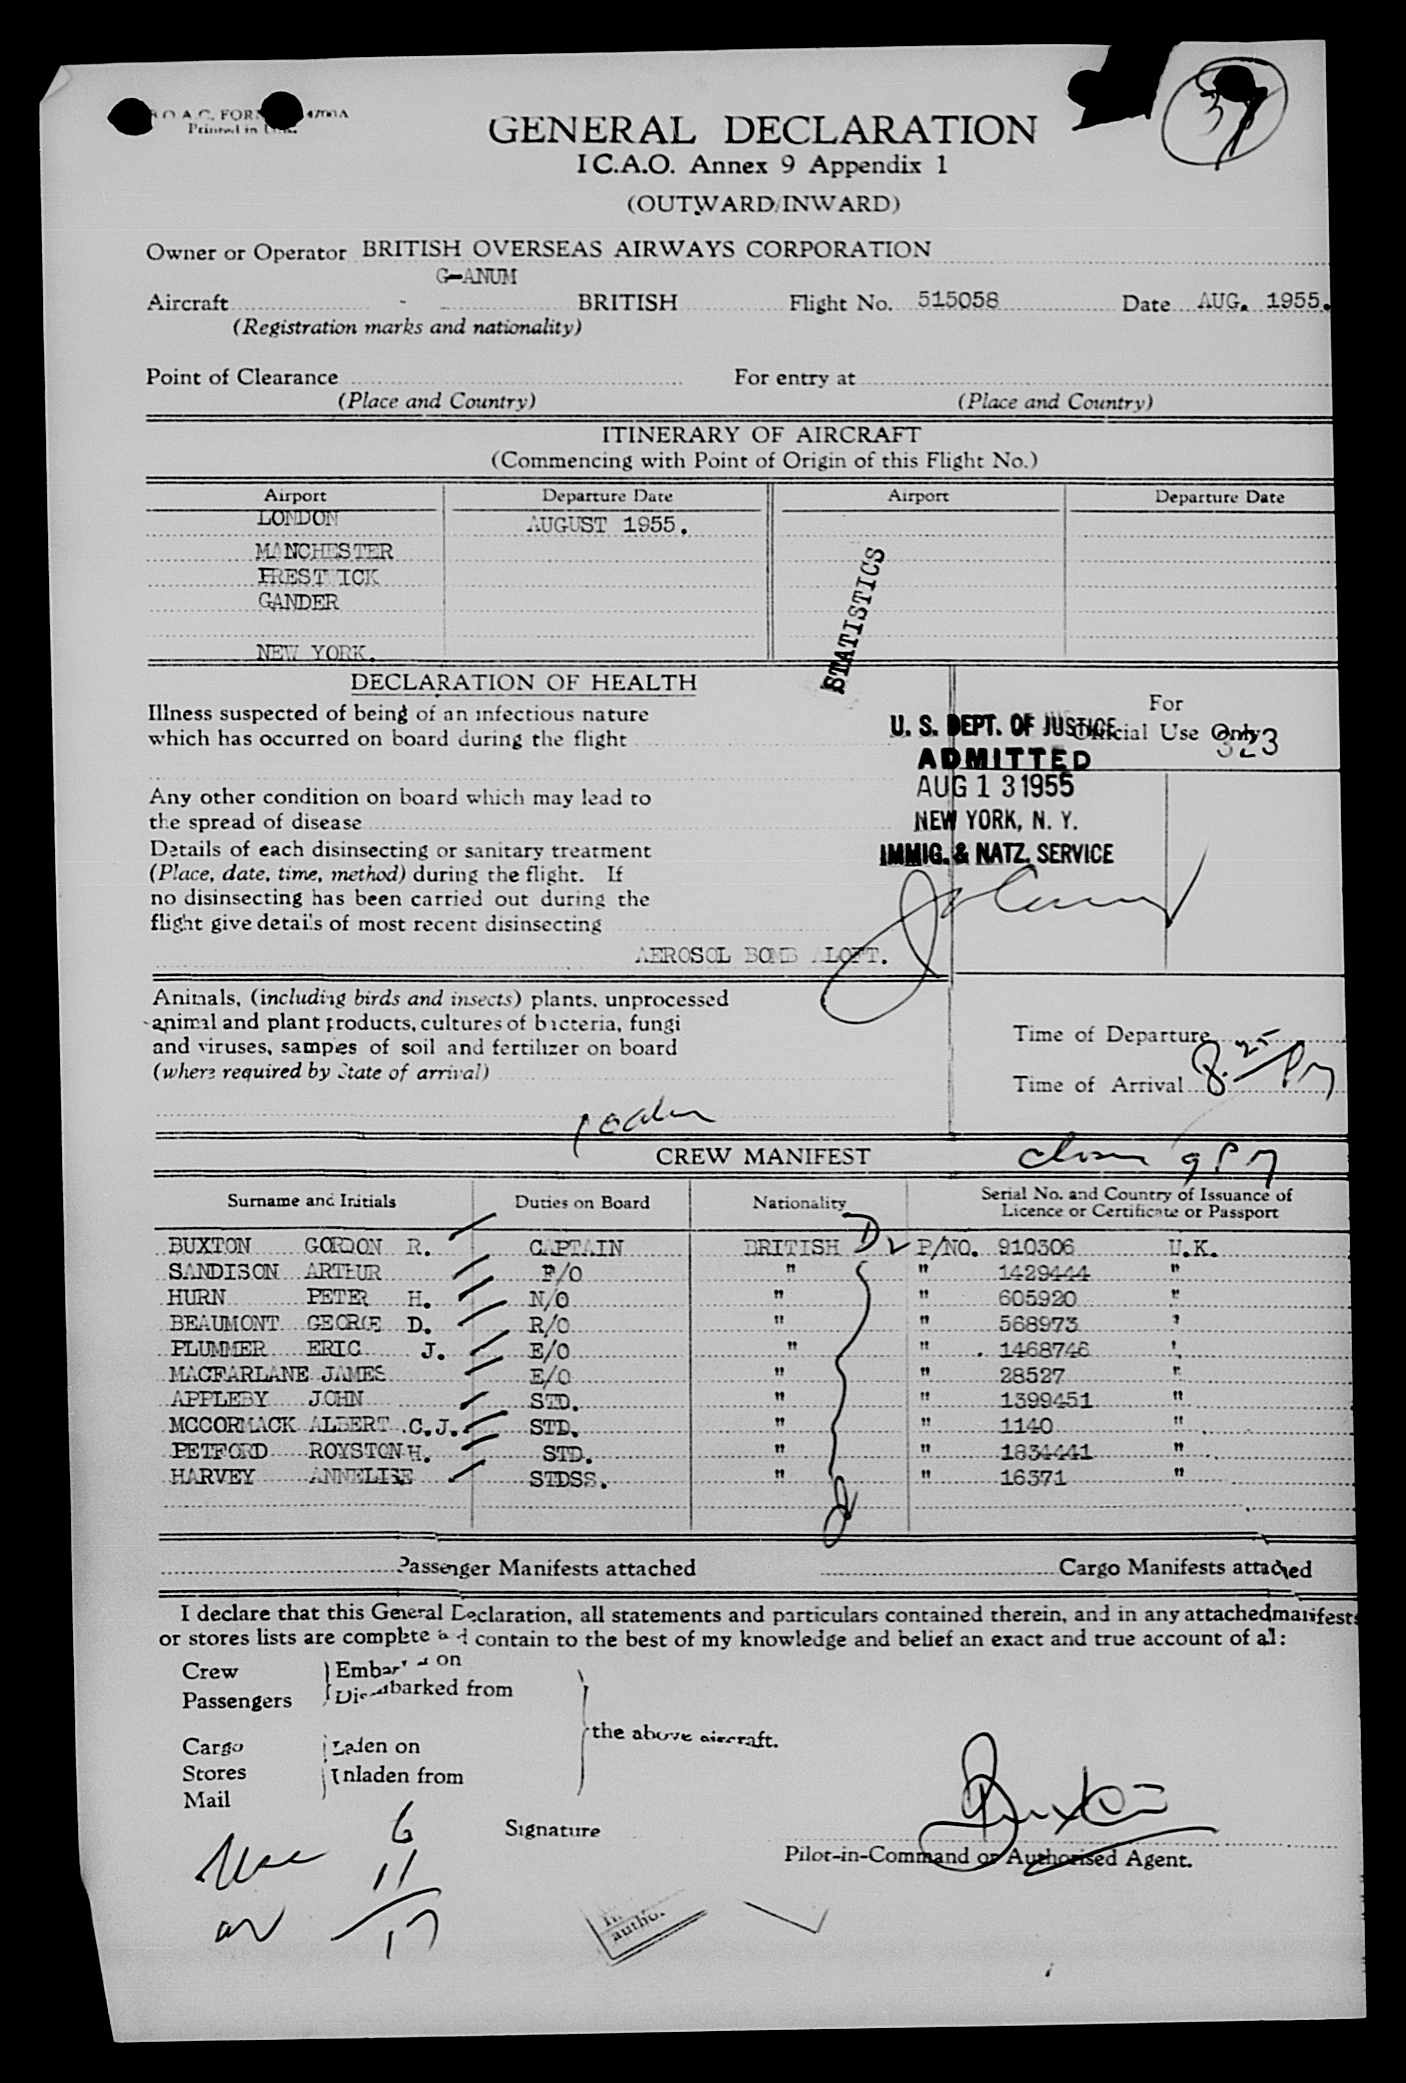 B.O.A.C. FORM
Printed in
37
GENERAL DECLARATION
I.C.A.O. Annex 9 Appendix 1
(OUTWARD/INWARD)
Owner or Operator BRITISH OVERSEAS AIRWAYS CORPORATION
G-ANUM
Aircraft - BRITISH Flight No. 515058 Date AUG. 1955.
(Registration marks and nationality)
Point of Clearance For entry at
(Place and Country) (Place and Country)
ITINERARY OF AIRCRAFT
(Commencing with Point of Origin of this Flight No.)
Airport Departure Date Airport Departure Date
LONDON AUGUST 1955.
MANCHESTER
PRESTWICK
GANDER
NEW YORK.
STATISTICS
DECLARATION OF HEALTH
Illness suspected of being of an infectious nature
which has occurred on board during the flight
Any other condition on board which may lead to
the spread of disease
Details of each disinsecting or sanitary treatment
(Place, date, time, method) during the flight. If
no disinsecting has been carried out during the
flight give details of most recent disinsecting
AEROSOL BOMB ALOFT.
For
Official Use Only
323
U. S. DEPT. OF JUSTICE
ADMITTED
AUG 13 1955
NEW YORK, N. Y.
IMMIG. & NATZ. SERVICE
Animals, (including birds and insects) plants, unprocessed
animal and plant products, cultures of bacteria, fungi
and viruses, samples of soil and fertilizer on board
(where required by State of arrival)
Time of Departure
Time of Arrival 8.25 PM
CREW MANIFEST
9 PM
Surname and Initials Duties on Board Nationality Serial No. and Country of Issuance of
Licence or Certificate or Passport
BUXTON GORDON R. CAPTAIN BRITISH P/NO. 910306 U.K.
SANDISON ARTHUR F/O " " 1429444 "
HURN PETER H. N/O " " 605920 "
BEAUMONT GEORGE D. R/O " " 568973 "
PLUMMER ERIC J. E/O " " 1468746 "
MACFARLANE JAMES E/O " " 28527 "
APPLEBY JOHN STD. " " 1399451 "
MCCORMACK ALBERT C.J. STD. " " 1140 "
PETFORD ROYSTON H. STD. " " 1834441 "
HARVEY ANNELISE STDSS. " " 16371 "
Passenger Manifests attached Cargo Manifests attached
I declare that this General Declaration, all statements and particulars contained therein, and in any attached manifests
or stores lists are complete and contain to the best of my knowledge and belief an exact and true account of all:
Crew Embarked on
Passengers Disembarked from
the above aircraft.
Cargo Laden on
Stores Unladen from
Mail
Signature Buxton
Pilot-in-Command or Authorised Agent.
6
11
17
autho.